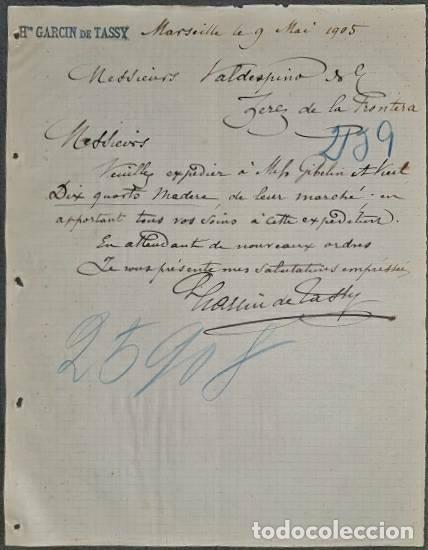 Hte GARCIN DE TASSY Marseille le 9 Mai 1905
Messieurs Valdespino &
Jerez de la Frontera
259
Messieurs
Veuillez expédier à Mess Gibelin et
Dix quarts Madere, de leur marché en
apportant tous vos soins à cette expedition.
En attendant de nouveaux ordres
Je vous présente mes salutations empressées
Garcin de Tassy
25908
todocoleccion.net